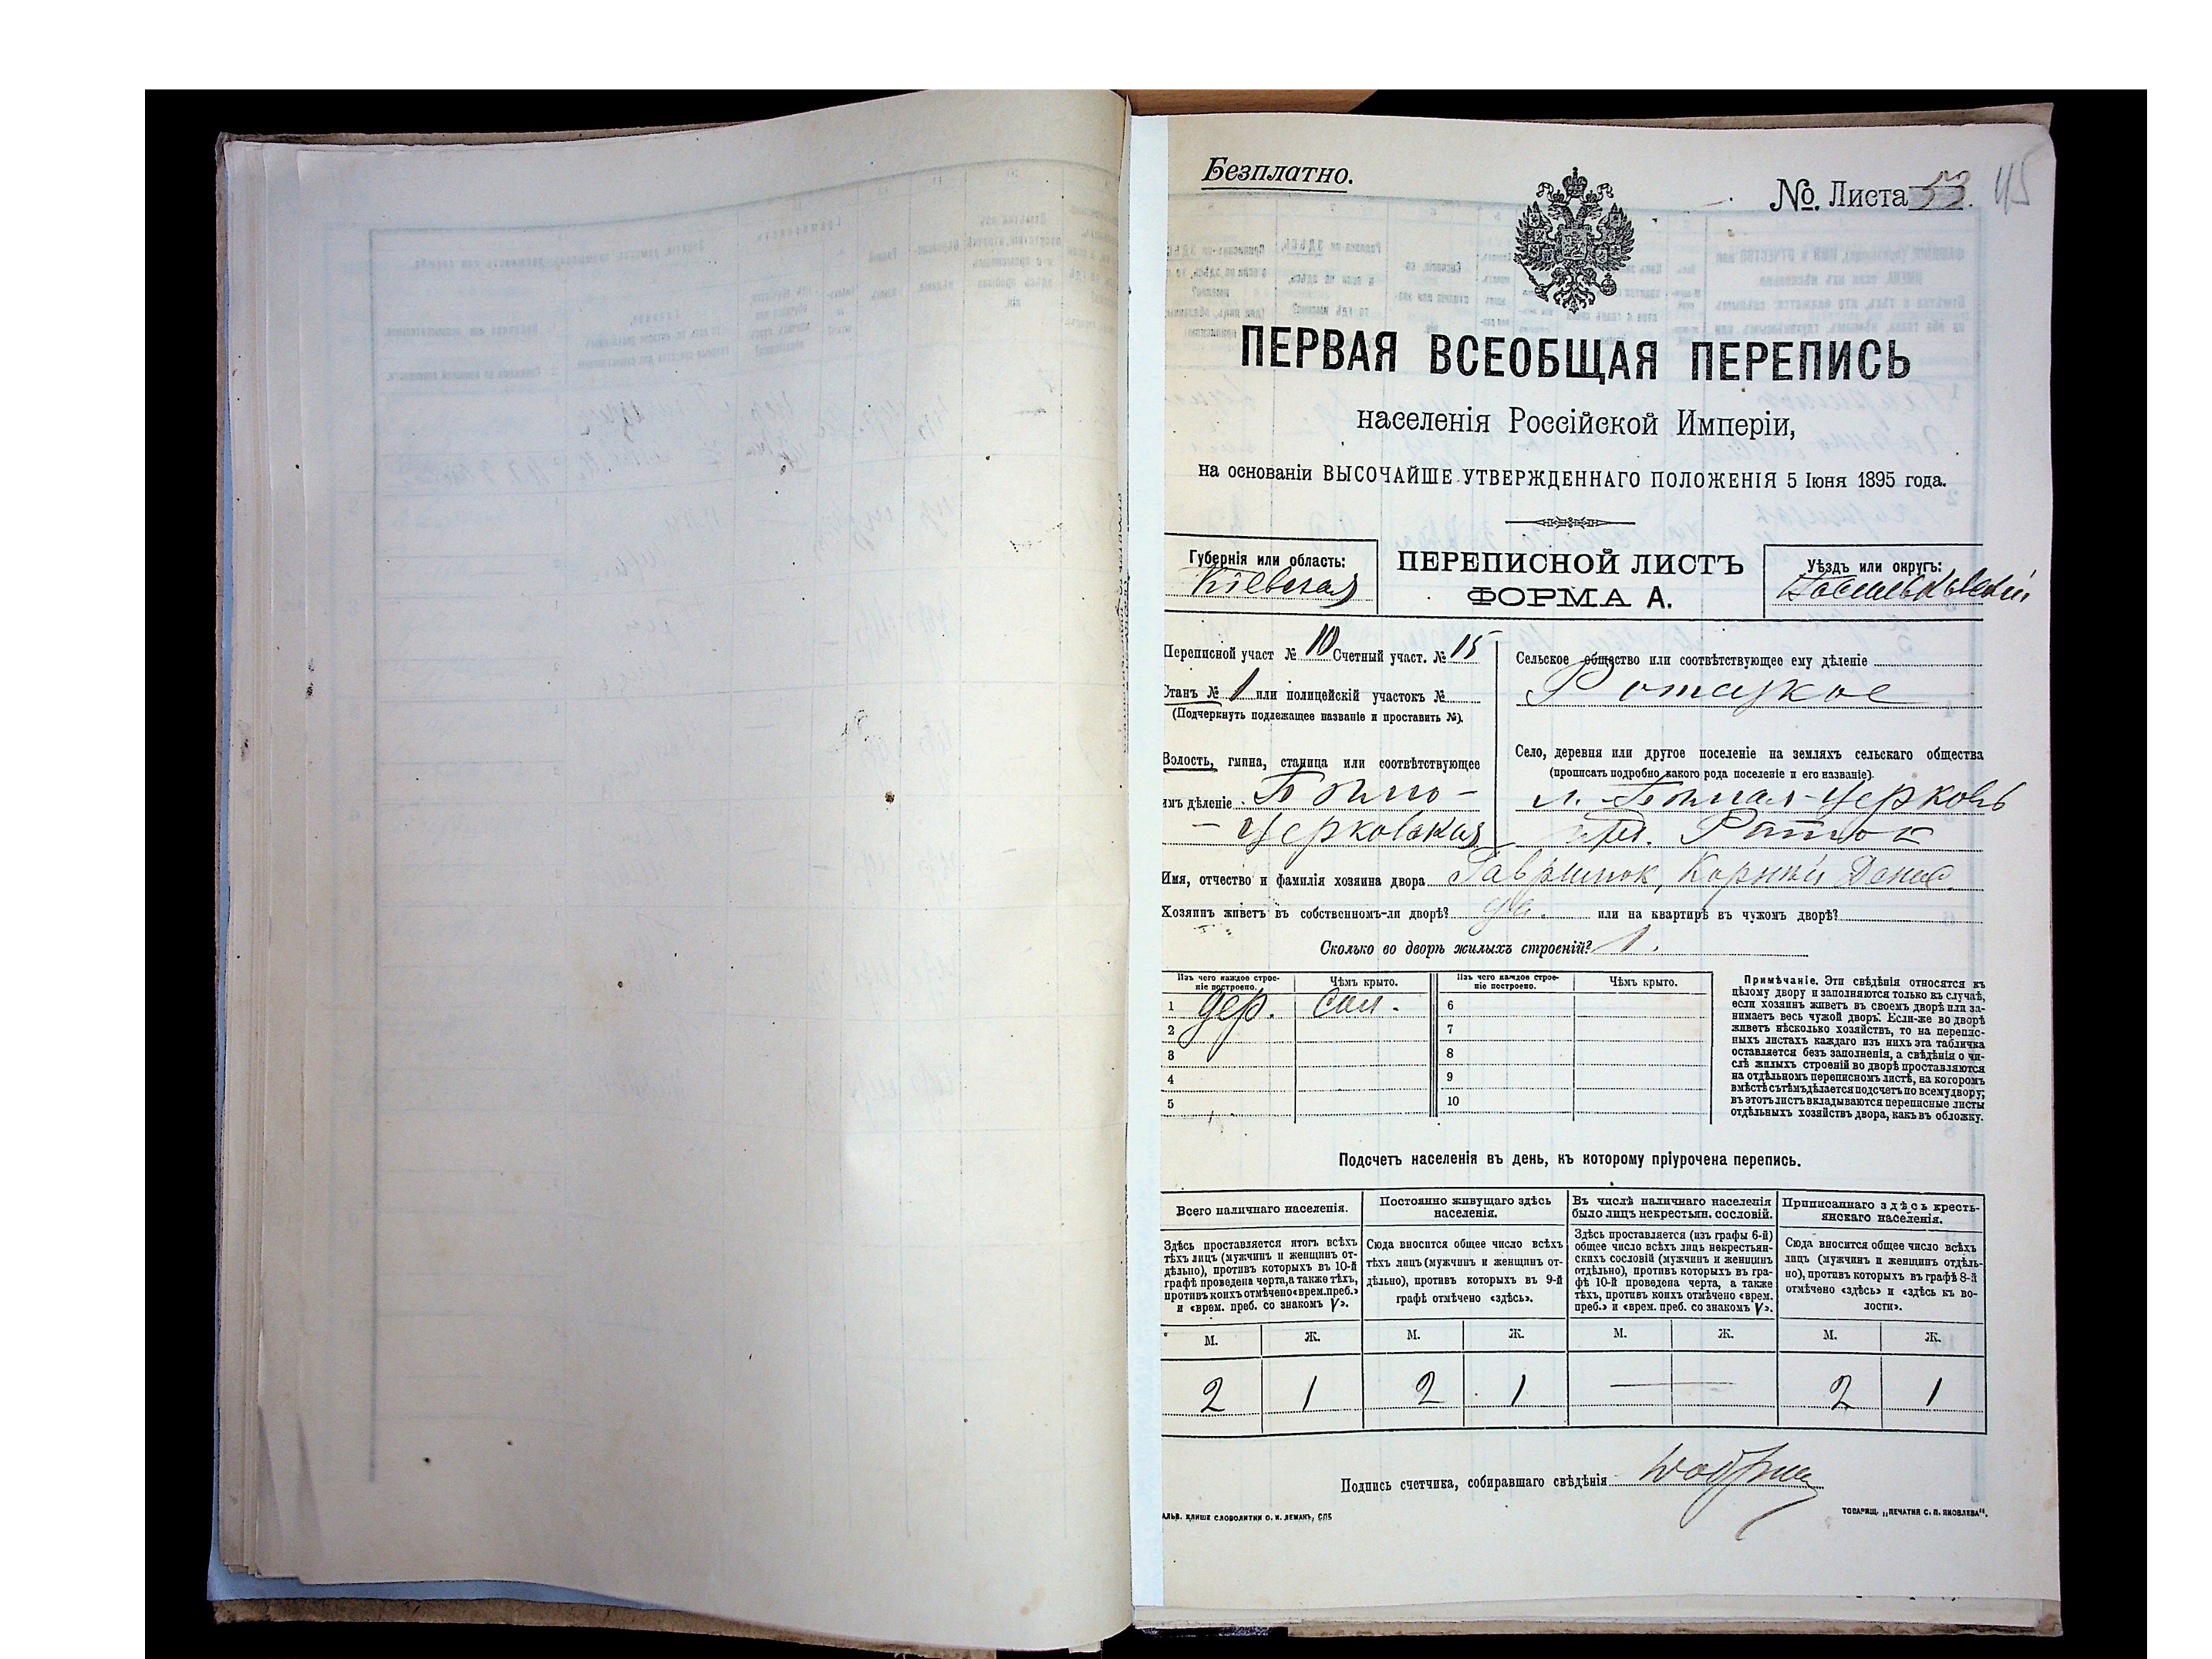 Безплатно.
№. Листа 53. 45
ПЕРВАЯ ВСЕОБЩАЯ ПЕРЕПИСЬ
населенія Россійской Имперіи,
на основаніи ВЫСОЧАЙШЕ УТВЕРЖДЕННАГО ПОЛОЖЕНІЯ 5 Іюня 1895 года.
Губернія или область:
Кіевская
ПЕРЕПИСНОЙ ЛИСТЪ
ФОРМА А.
Уѣздъ или округъ:
Васильковскій
Переписной участ № 10 Счетный участ. № 15
Станъ № 1 или полицейскій участокъ №
(Подчеркнуть подлежащее названіе и проставить №).
Волость, гмина, станица или соотвѣтствующее
имъ дѣленіе Бѣло-
- Церковская
Сельское общество или соотвѣтствующее ему дѣленіе
Ротокское
Село, деревня или другое поселеніе на земляхъ сельскаго общества
(прописать подробно какого рода поселеніе и его названіе).
м. Бѣлая-Церковь
Ротокъ
Имя, отчество и фамилія хозяина двора Гаврилюк, Корнѣй Денис.
Хозяинъ живетъ въ собственномъ-ли дворѣ? да. или на квартирѣ въ чужомъ дворѣ?
Сколько во дворѣ жилыхъ строеній? 1.
Изъ чего каждое строе-
ніе построено.
Чѣмъ крыто.
Изъ чего каждое строе-
ніе построено.
Чѣмъ крыто.
1 дер. сол. 6
2 7
3 8
4 9
5 10
Примѣчаніе. Эти свѣдѣнія относятся къ
цѣлому двору и заполняются только въ случаѣ,
если хозяинъ живетъ въ своемъ дворѣ или за-
нимаетъ весь чужой дворъ. Если-же во дворѣ
живетъ нѣсколько хозяйствъ, то на перепис-
ныхъ листахъ каждаго изъ нихъ эта табличка
оставляется безъ заполненія, а свѣдѣнія о чи-
слѣ жилыхъ строеній во дворѣ проставляются
на отдѣльномъ переписномъ листѣ, на которомъ
вмѣстѣ съ тѣмъ дѣлается подсчетъ по всему двору;
въ этотъ листъ вкладываются переписные листы
отдѣльныхъ хозяйствъ двора, какъ въ обложку.
Подсчетъ населенія въ день, къ которому пріурочена перепись.
Всего наличнаго населенія.
Здѣсь проставляется итогъ всѣхъ
тѣхъ лицъ (мужчинъ и женщинъ от-
дѣльно), противъ которыхъ въ 10-й
графѣ проведена черта, а также тѣхъ,
противъ коихъ отмѣчено «врем. преб.»
и «врем. преб. со знакомъ V».
Постоянно живущаго здѣсь
населенія.
Сюда вносится общее число всѣхъ
тѣхъ лицъ (мужчинъ и женщинъ от-
дѣльно), противъ которыхъ въ 9-й
графѣ отмѣчено «здѣсь».
Въ числѣ наличнаго населенія
было лицъ некрестьян. сословій.
Здѣсь проставляется (изъ графы 6-й)
общее число всѣхъ лицъ некрестьян-
скихъ сословій (мужчинъ и женщинъ
отдѣльно), противъ которыхъ въ гра-
фѣ 10-й проведена черта, а также
тѣхъ, противъ коихъ отмѣчено «врем.
преб.» и «врем. преб. со знакомъ V».
Приписаннаго здѣсь кресть-
янскаго населенія.
Сюда вносится общее число всѣхъ
лицъ (мужчинъ и женщинъ отдѣль-
но), противъ которыхъ въ графѣ 8-й
отмѣчено «здѣсь» и «здѣсь къ во-
лости».
М. Ж. М. Ж. М. Ж. М. Ж.
2 1 2 1 — 2 1
Подпись счетчика, собиравшаго свѣдѣнія
АЛЬВ. КЛИШЕ СЛОВОЛИТНИ О. И. ЛЕМАНЪ, СПБ
ТОВАРИЩ. „ПЕЧАТНЯ С. П. ЯКОВЛЕВА“.